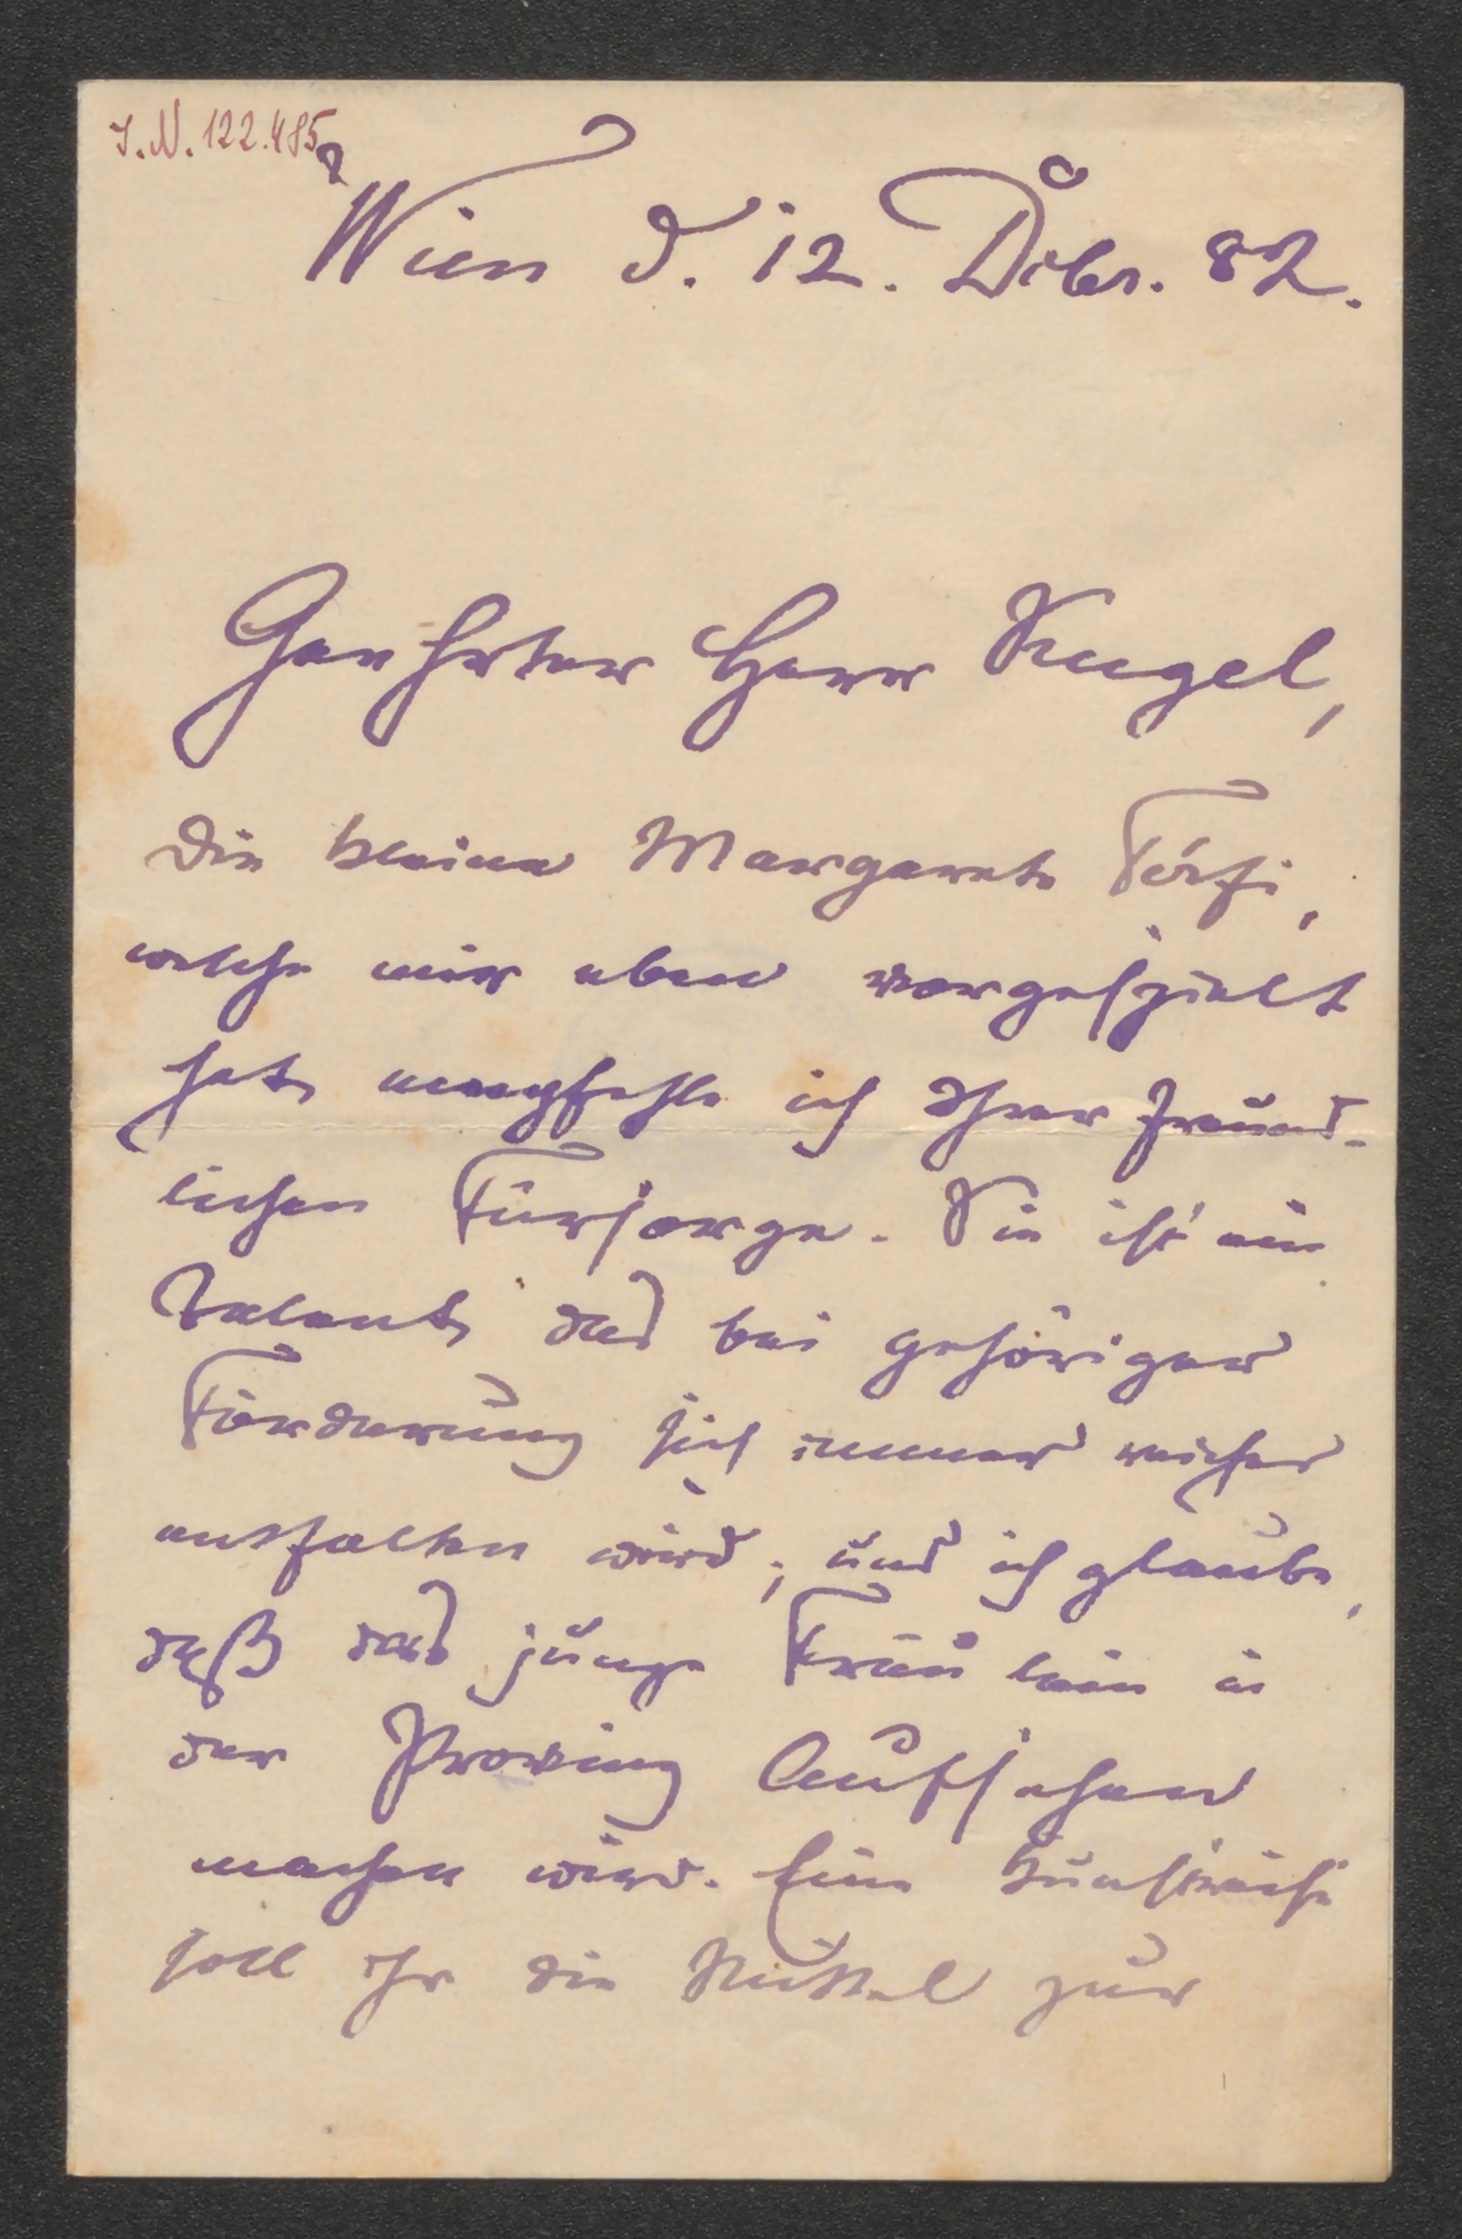 J.N. 122.485
Wien d. 12. Dzbr. 82.
Geehrter Herr Kugel,
Die kleine Margarete
welche mir eben vorgespielt
hat, empfehle ich Ihrer freund-
lichen Fürsorge. Sie ist ein
Talent, das bei gehöriger
Förderung sich immer reicher
entfalten wird; und ich glaube,
daß das junge Fräulein in
der Provinz Aufsehen
machen wird. Eine Kunstreise
soll ihr die Mittel zur